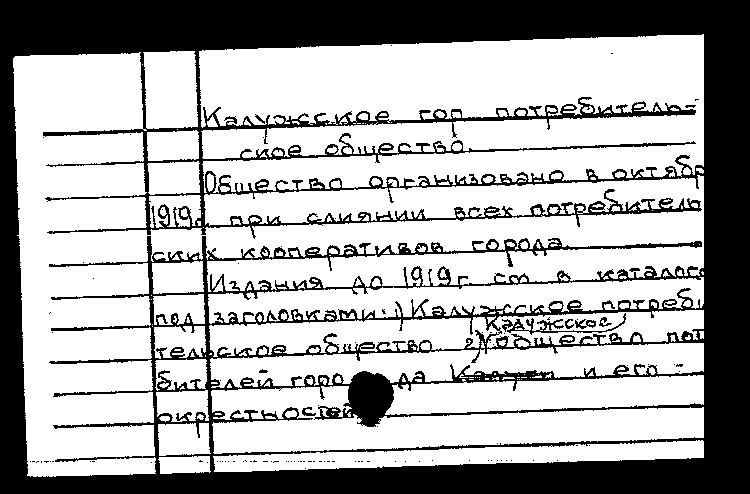 Калужское гор потребитель=
ское общество.
Общество организовано в октябр
1919г. при слиянии всех потребитель
ских кооперативов города.
Издания до 1919г. см в каталоге
под заголовками: 1) Калужское потреби
тельское общество 2) Калужское общество пот
бителей горо да и его -
окрестностей